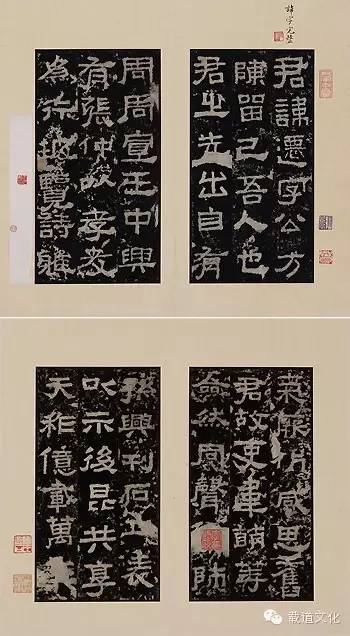 諱字完整
君諱遷字公方
陳留己吾人也
君之先出自有
周周宣王中興
有張仲以孝友
為行披覽詩雅
氣厥析感思舊
君故吏韋萌等
僉然同聲師
孫興刊石立表
以示後昆共享
天祚億載萬
载道文化